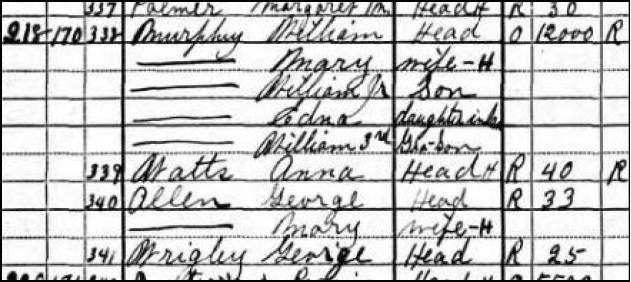 337 Palmer Margaret M. Head H R 30
218 170 338 Murphy William Head O 12000 R
—— Mary wife-H
—— William Jr Son
—— Edna daughter in la
—— William 3rd Gra-son
339 Watts Anna Head H R 40 R
340 Allen George Head R 33
—— Mary wife-H
341 Wrigley George Head R 25
Head H